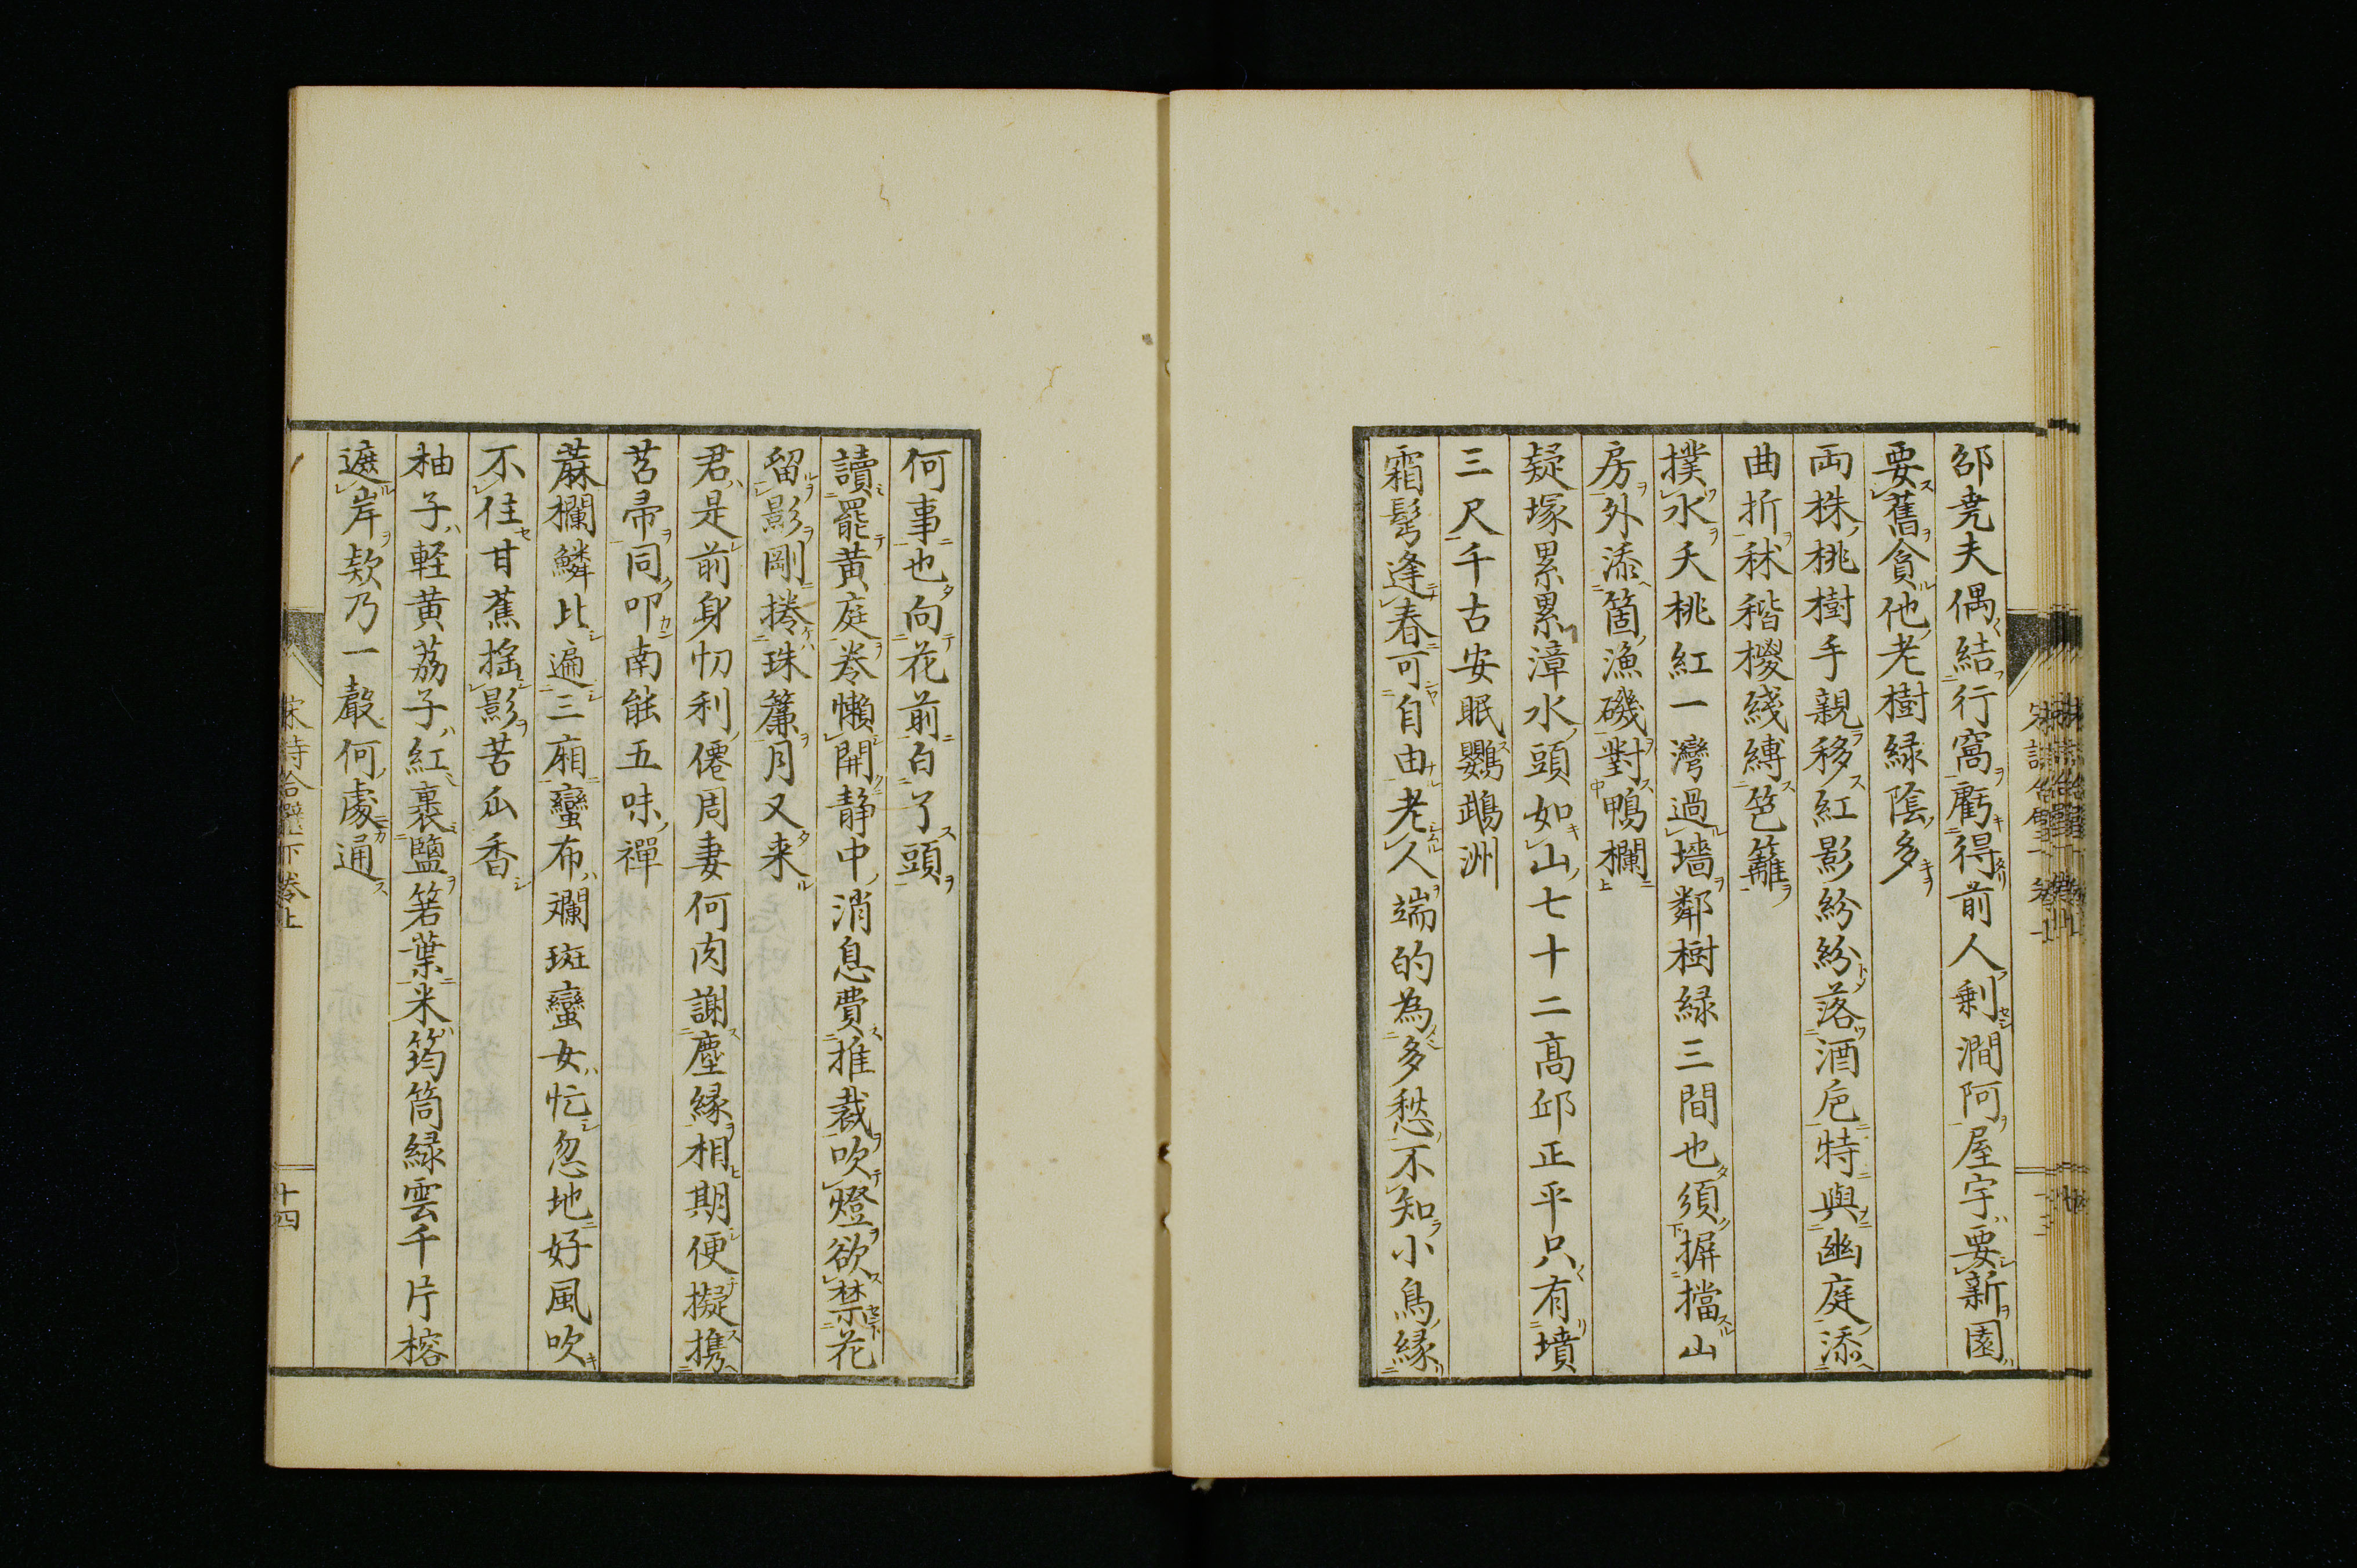 邵尭夫偶結行窩虧得前人剰澗阿屋宇要新園
要舊貪他老樹緑陰多
両株桃樹手親移紅影紛紛落酒巵特與幽庭添
曲折秫稭椶綫縛笆籬
撲水夭桃紅一灣過墻鄰樹緑三間也須摒擋山
房外添箇漁磯對鴨欄
疑塚累累漳水頭如山七十二髙邱正平只有墳
三尺千古安眠鸚鵡洲
霜髩逢春可自由老人端的為多愁不知小鳥縁
何事也向花前白了頭
讀罷黄庭巻懶開静中消息費推裁吹燈欲禁花
留影剛捲珠簾月又来
君是前身忉利僊周妻何肉謝塵縁相期便擬攜
苕帚同叩南能五味禪
蔴欄鱗比遍三廂蠻布斕斑蠻女忙忽地好風吹
不住甘蕉揺影苦瓜香
柚子軽黄茘子紅裹鹽箬葉米筠筒緑雲千片榕
遮岸欵乃一聲何處通
宋詩合璧下巻上
十四